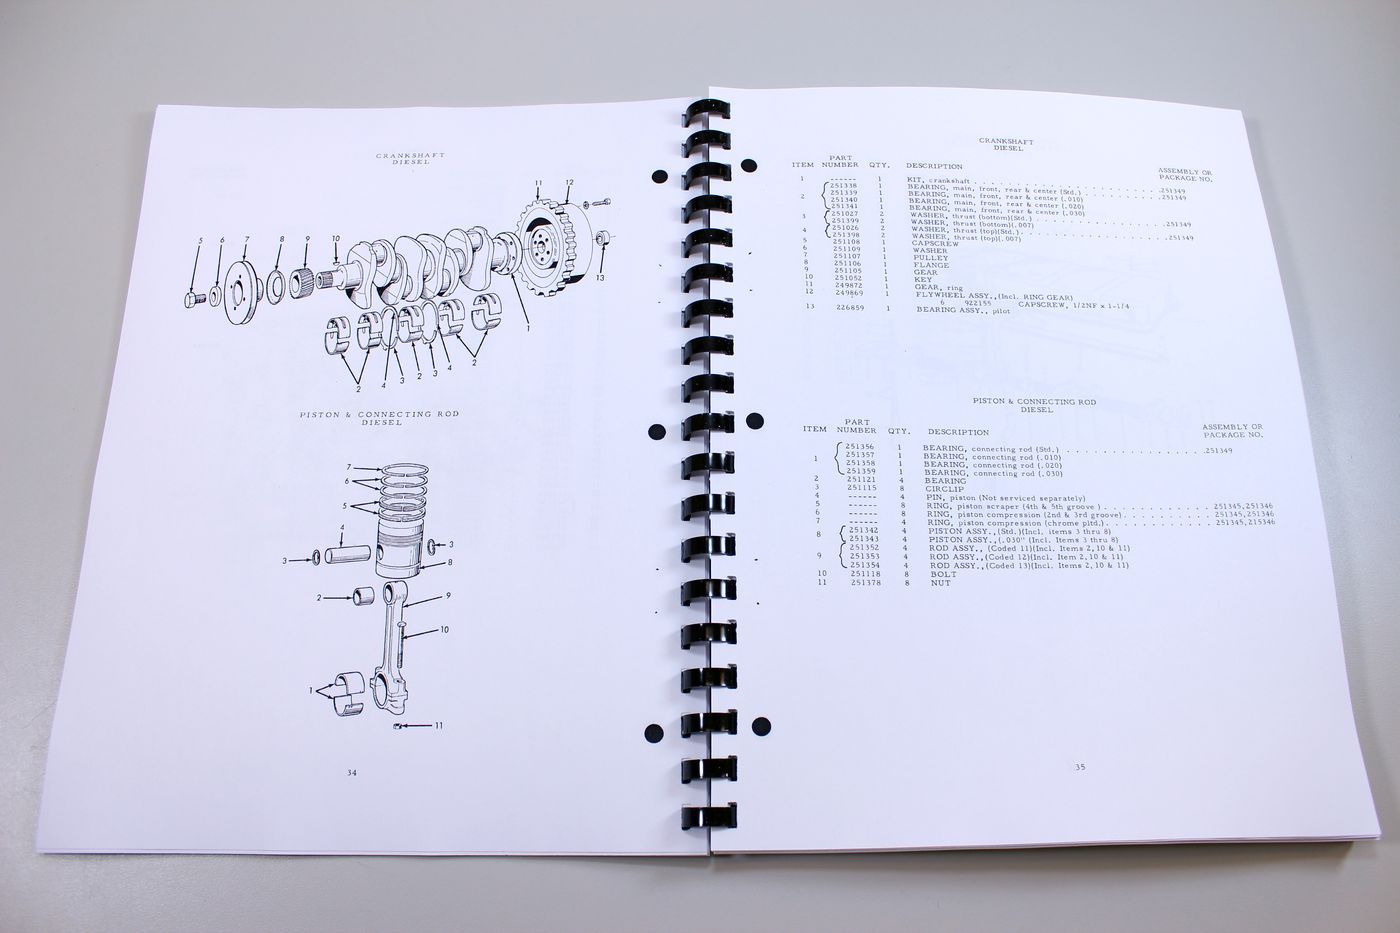 CRANKSHAFT
DIESEL
11 12
5 6 7 8 9 10
13
1
2 4 3 2 3 4 2
PISTON & CONNECTING ROD
DIESEL
7
6
5
4
3 3
8
2 9
10
1
11
34
CRANKSHAFT
DIESEL
ITEM PART NUMBER QTY. DESCRIPTION ASSEMBLY OR PACKAGE NO.
1 ------ 1 KIT, crankshaft
2 251338 1 BEARING, main, front, rear & center (Std.) 251349
251339 1 BEARING, main, front, rear & center (.010) 251349
251340 1 BEARING, main, front, rear & center (.020)
251341 1 BEARING, main, front, rear & center (.030)
3 251027 2 WASHER, thrust (bottom)(Std.) 251349
251399 2 WASHER, thrust (bottom)(.007)
4 251026 2 WASHER, thrust (top)(Std.) 251349
251398 2 WASHER, thrust (top)(.007)
5 251108 1 CAPSCREW
6 251109 1 WASHER
7 251107 1 PULLEY
8 251106 1 FLANGE
9 251105 1 GEAR
10 251052 1 KEY
11 249872 1 GEAR, ring
12 249869 1 FLYWHEEL ASSY.,(Incl. RING GEAR)
6 922155 CAPSCREW, 1/2NF x 1-1/4
13 226859 1 BEARING ASSY., pilot
PISTON & CONNECTING ROD
DIESEL
ITEM PART NUMBER QTY. DESCRIPTION ASSEMBLY OR PACKAGE NO.
1 251356 1 BEARING, connecting rod (Std.) 251349
251357 1 BEARING, connecting rod (.010)
251358 1 BEARING, connecting rod (.020)
251359 1 BEARING, connecting rod (.030)
2 251121 4 BEARING
3 251115 8 CIRCLIP
4 ------ 4 PIN, piston (Not serviced separately)
5 ------ 8 RING, piston scraper (4th & 5th groove) 251345,251346
6 ------ 8 RING, piston compression (2nd & 3rd groove) 251345,251346
7 ------ 4 RING, piston compression (chrome pltd.) 251345,215346
8 251342 4 PISTON ASSY.,(Std.)(Incl. items 3 thru 8)
251343 4 PISTON ASSY.,(.030" (Incl. Items 3 thru 8)
9 251352 4 ROD ASSY., (Coded 11)(Incl. Items 2, 10 & 11)
251353 4 ROD ASSY., (Coded 12)(Incl. Item 2, 10 & 11)
251354 4 ROD ASSY.,(Coded 13)(Incl. Items 2, 10 & 11)
10 251118 8 BOLT
11 251378 8 NUT
35